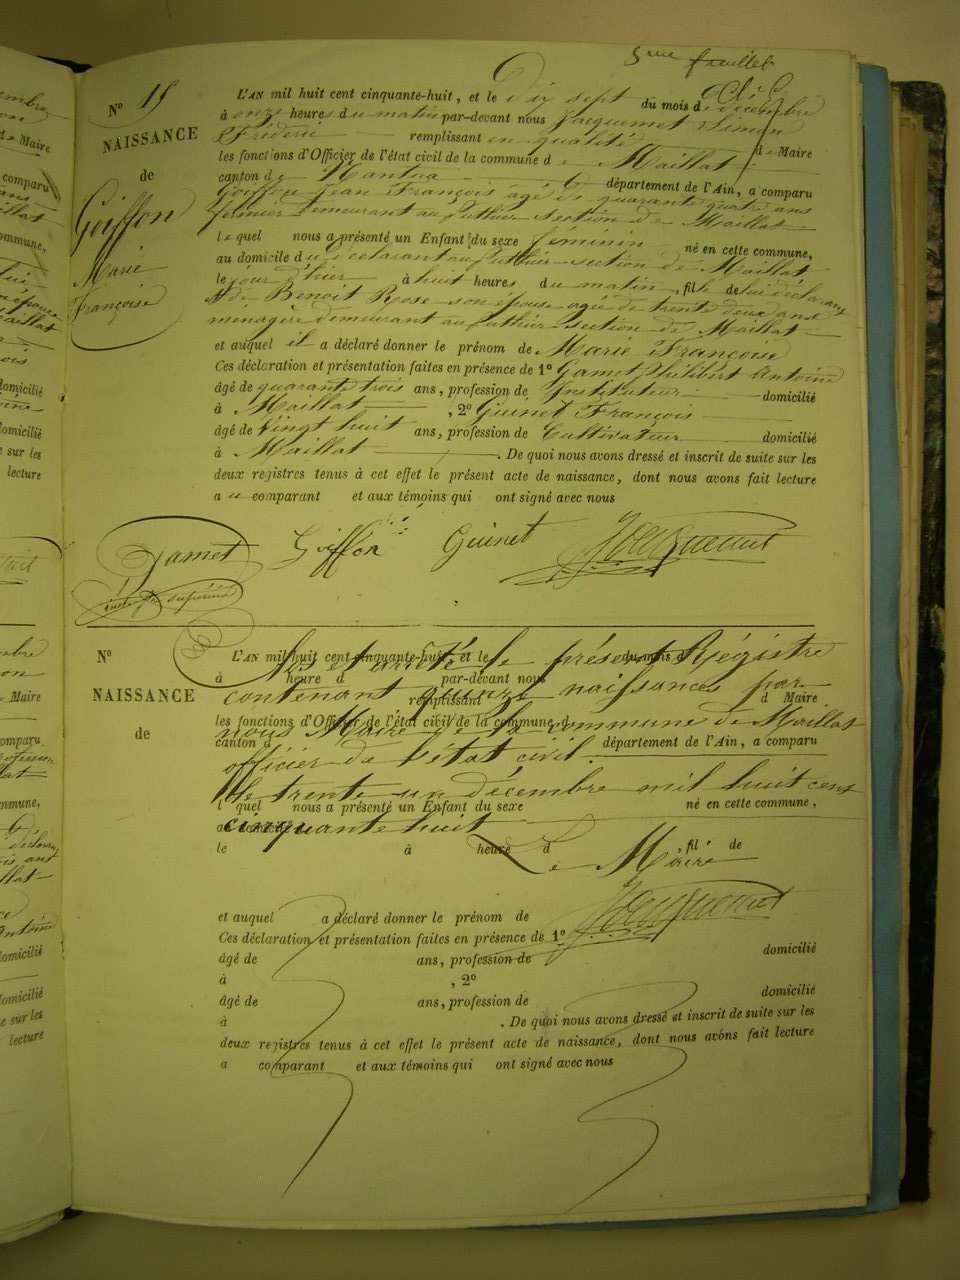 5me feuillet
N° 15
NAISSANCE
de
Goiffon
Marie
Françoise
L'AN mil huit cent cinquante-huit, et le Dix sept du mois de décembre
à onze heures du matin par-devant nous Jacquemet Simon
Fréderic remplissant en qualité de Maire
les fonctions d'Officier de l'état civil de la commune de Maillat
canton de Nantua département de l'Ain, a comparu
Goiffon Jean François âgé de quarante quatre ans
fermier demeurant au section de Maillat
lequel nous a présenté un Enfant du sexe féminin né en cette commune,
au domicile du déclarant au section de Maillat
le jour d'hier à huit heures du matin, fille de lui déclarant
& de Benoit Rose son épouse agée de trente deux ans
ménagère demeurant au section de Maillat
et auquel il a déclaré donner le prénom de Marie Françoise
Ces déclaration et présentation faites en présence de 1° Gamet Philibert Antoine
âgé de quarante trois ans, profession de Instituteur domicilié
à Maillat, 2° Guinet François
âgé de vingt huit ans, profession de Cultivateur domicilié
à Maillat. De quoi nous avons dressé et inscrit de suite sur les
deux registres tenus à cet effet le présent acte de naissance, dont nous avons fait lecture
au comparant et aux témoins qui ont signé avec nous
Gamet Goiffon Guinet Jacquemet
N°
NAISSANCE
de
L'AN mil huit cent cinquante-huit, et le du mois d
Clos et arrêté le présent Régistre
à heure d par-devant nous
contenant quinze naissances par
remplissant d Maire
les fonctions d'Officier de l'état civil de la commune d
nous Maire de la commune de Maillat
canton d département de l'Ain, a comparu
officier de l'état civil.
le trente un décembre mil huit cent
l quel nous a présenté un Enfant du sexe né en cette commune,
cinquante huit
au domicile
le à heure d fil de
Le Maire
Jacquemet
et auquel a déclaré donner le prénom de
Ces déclaration et présentation faites en présence de 1°
âgé de ans, profession de domicilié
à , 2°
âgé de ans, profession de domicilié
à . De quoi nous avons dressé et inscrit de suite sur les
deux registres tenus à cet effet le présent acte de naissance, dont nous avons fait lecture
a comparant et aux témoins qui ont signé avec nous